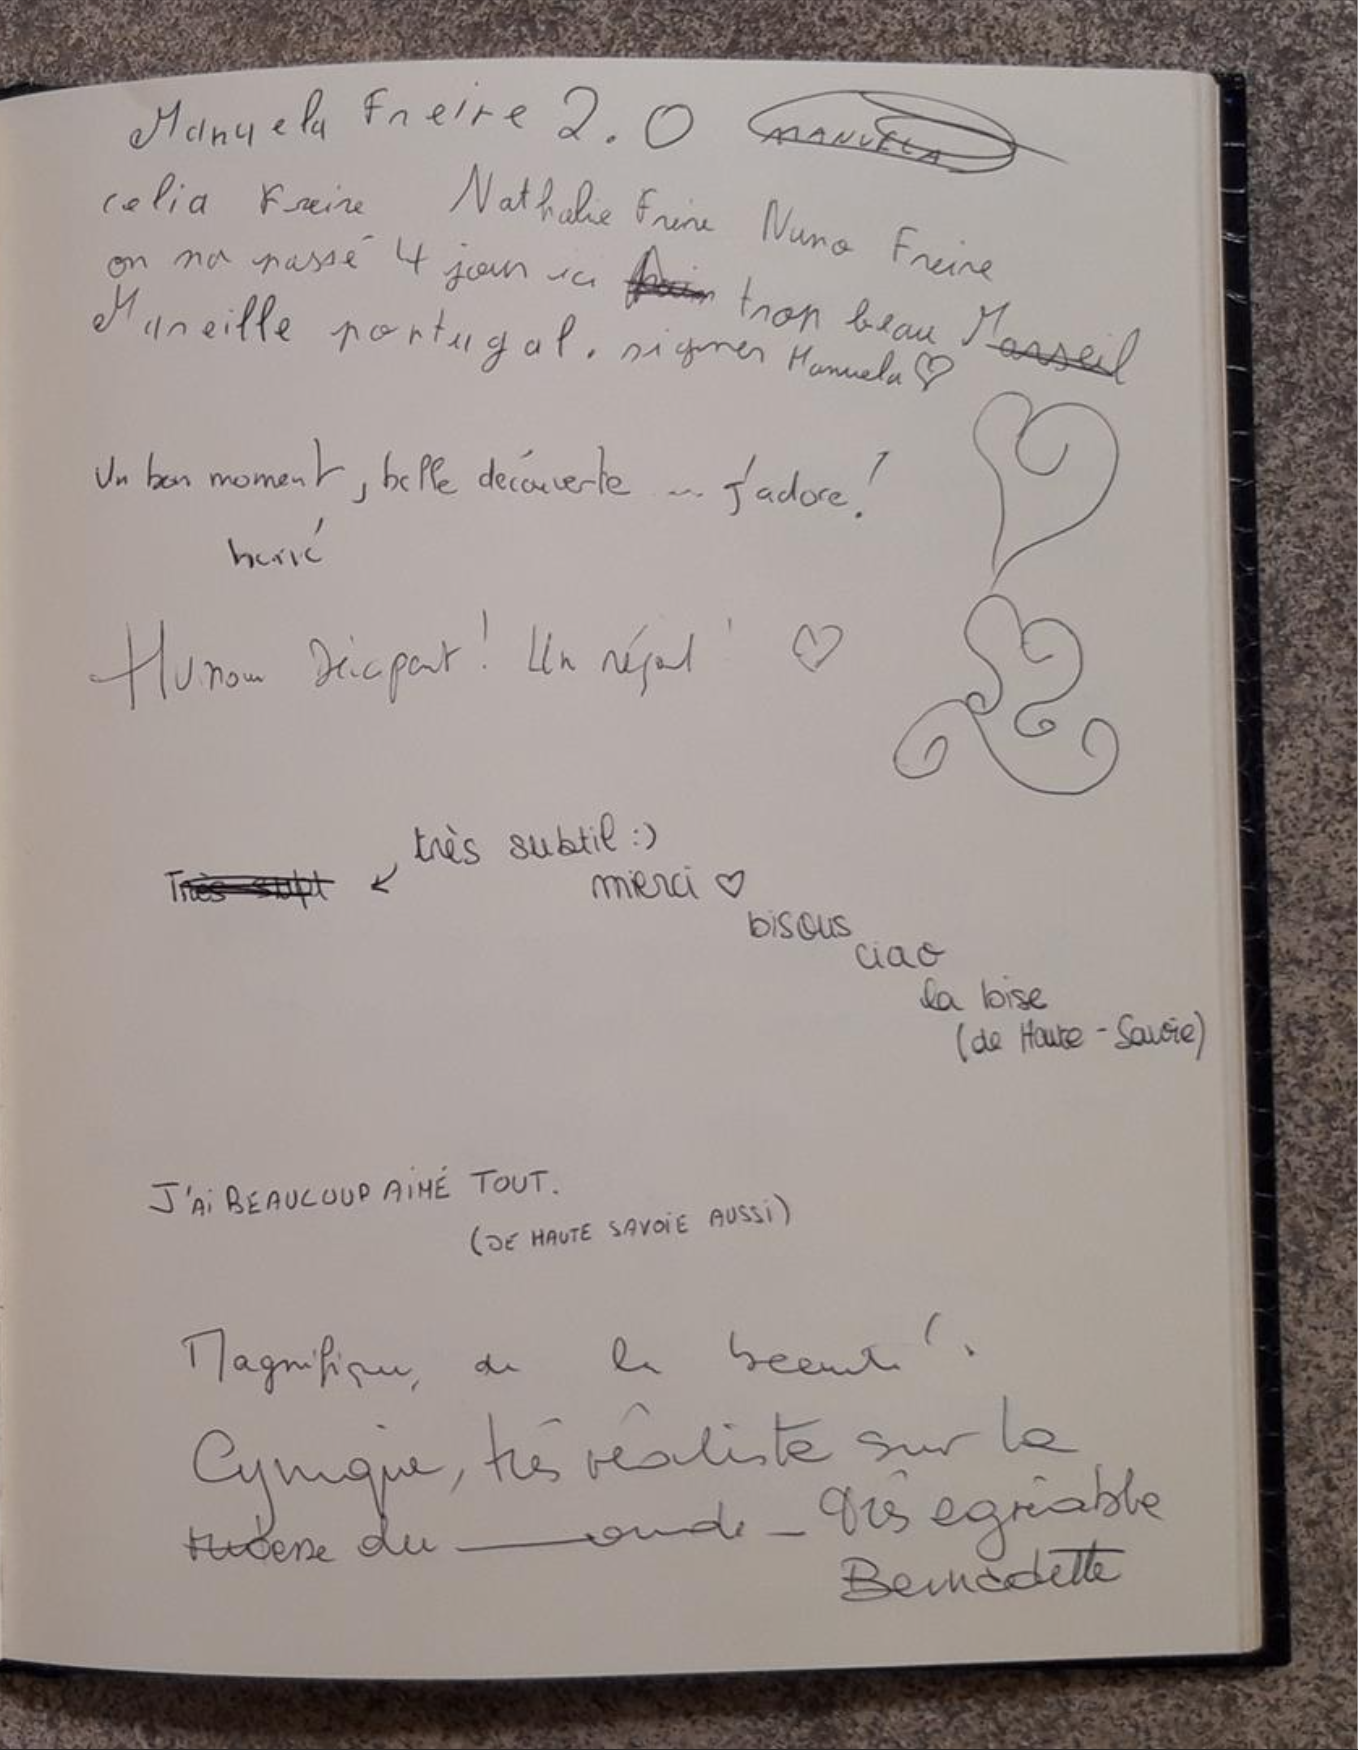 Manuela Freire 2.0 MANUELA
celia Freire Nathalie Freire Nuno Freire
on na passé 4 jour ici trop beau Marseil
Marseille portugal. signer Manuela ♡
Un bon moment, belle découverte ... J'adore!
hervé
Humour Décapant! Un régal! ♡
Très subt ↙ très subtil :)
merci ♡
bisous
ciao
la bise
(de Haute-Savoie)
J'Ai BEAUCOUP AiMÉ TOUT.
(DE HAUTE SAVOiE AUSSi)
Magnifique, de la beauté!
Cynique, très réaliste sur la
du monde - très agréable
Bernadette